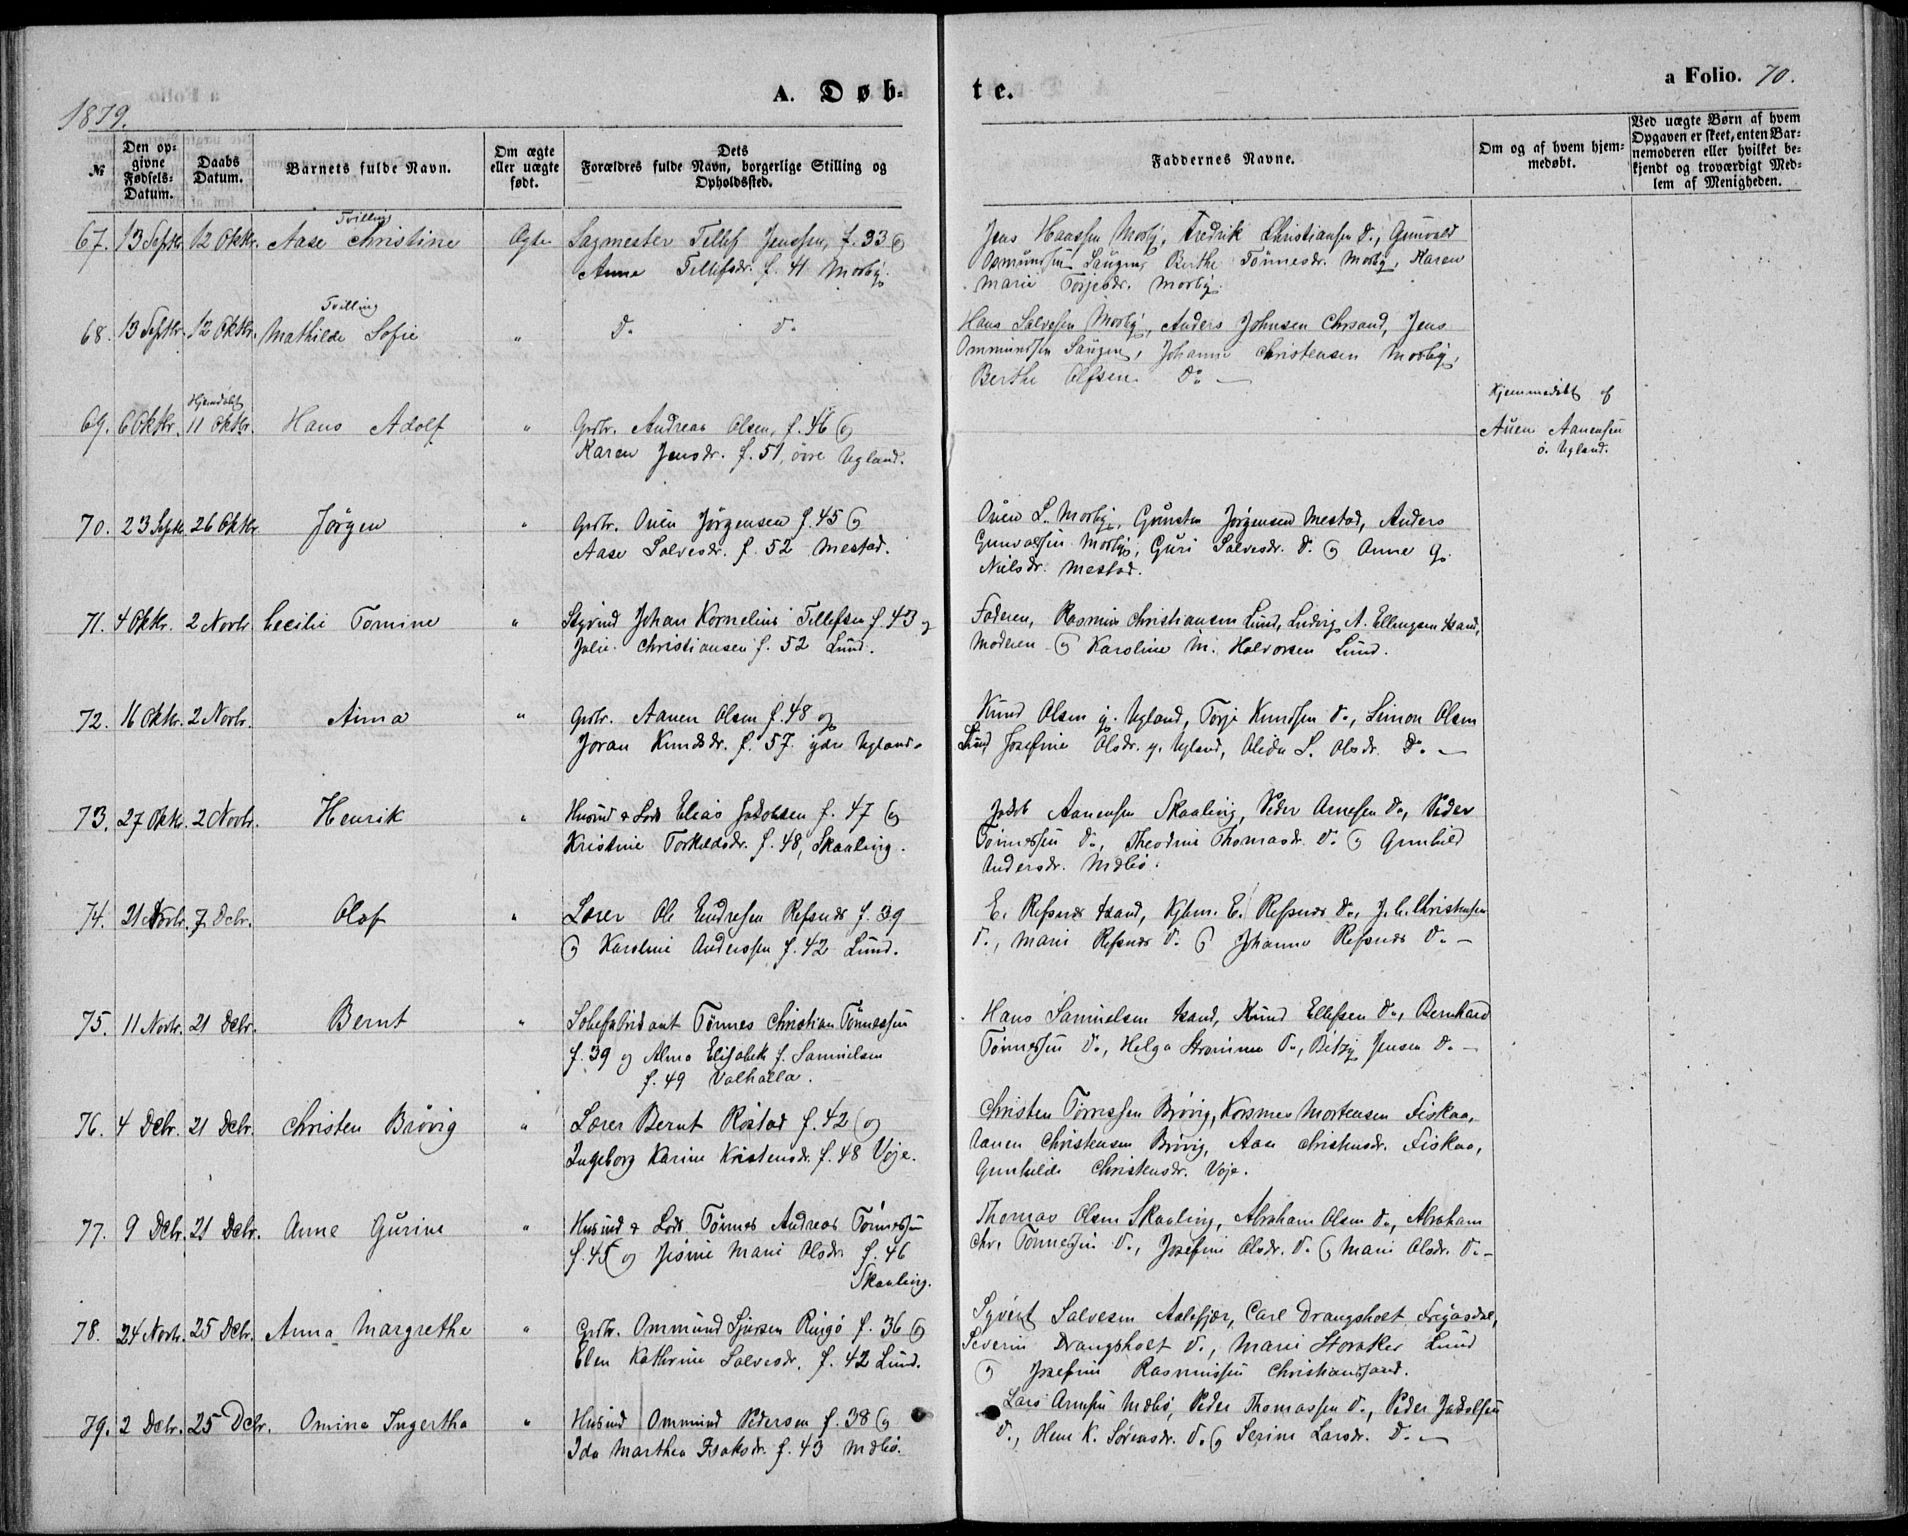 1879.
A. Døb-
te.
a Folio. 70.
№
Den op-
givne
Fødsels-
Datum.
Daabs
Datum.
Barnets fulde Navn.
Om ægte
eller uægte
født.
Dets
Forældres fulde Navn, borgerlige Stilling og
Opholdssted.
Faddernes Navne.
Om og af hvem hjem-
medøbt.
Ved uægte Børn af hvem
Opgaven er skeet, enten Bar-
nemoderen eller hvilket be-
kjendt og troværdigt Med-
lem af Menigheden.
67. 13 Septbr. 12 Oktbr. Aase Christine Ægte
Tvilling
Sagmester Tellef Jenssen, f. 33 og
Anne Tellefsdr. f. 41 Mosby.
Jens Hanssen Mosby, Fredrik Christiansen Do., Gunvald
Osmundsen Saugen, Berthe Tönnesdr. Mosby, Karen
Marie Torjesdr. Mosby.
68. 13 Septbr. 12 Oktbr. Mathilde Sofie "
Tvilling
Do. Do.
Hans Salvesen Mosby, Anders Johnsen Chrsand, Jens
Ommundsen Saugen, Johanne Christensen Mosby,
Berthe Olfsen Do. —
69. 6 Oktbr. 11 Oktbr. Hans Adolf "
Hjemdøbt
Grdbr. Andreas Olsen, f. 46 og
Karen Jensdr. f. 51, övre Ugland.
Hjemmedöbt af
Auen Aanensen
ö. Ugland.
70. 23 Septbr. 26 Oktbr. Jörgen "
Grdbr. Ouen Jörgensen f. 45 og
Aase Salvesdr. f. 52 Mestad.
Ouen L. Mosby, Gunsten Jörgensen Mestad, Anders
Gunvalsen Mosby, Guri Salvesdr. Do. og Anne G.
Nielsdr. Mestad.
71. 4 Oktbr. 2 Novbr. Cecilie Tomine "
Johan Kornelius Tellefsen f. 43 og
Julie Christiansen f. 52 Lund.
Faderen, Rasmus Christiansen Lund, Ludvig A. Ellingsen Xsand,
Moderen og Karoline M. Halvorsen Lund.
72. 16 Oktbr. 2 Novbr. Anna "
Grdbr. Aanen Olsen f. 48 og
Joran Knudsdr. f. 57 ydre Ugland.
Knud Olsen y. Ugland, Torje Knudsen Do., Simon Olsen
Lund, Josefine Olsdr. y. Ugland, Olida S. Olsdr. Do. —
73. 27 Oktbr. 2 Novbr. Henrik "
Husmd & Lods Elias Jakobsen f. 47 og
Kristine Torkildsdr. f. 48, Skaaling.
Jakob Aanensen Skaaling, Peder Arnesen Do., Peder
Tönnessen Do., Theodine Thomasdr. Do. og Gunhild
Andersdr. Mæbö.
74. 21 Novbr. 7 Dcbr. Olaf "
Lærer Ole Endresen Refsnes f. 39
og Karoline Anderssen f. 42 Lund.
E. Refsnes Xsand, Kjbm. E. Refsnes Do., J. C. Christensen
Do., Marie Refsnes Do. og Johanne Refsnes Do. —
75. 11 Novbr. 21 Dcbr. Bernt "
Sæbefabrikant Tönnes Christian Tönnessen
f. 39 og Alma Elisabeth f. Samuelsen
f. 49 Valhalla.
Hans Samuelsen Xsand, Knud Ellefsen Do., Bernhard
Tönnessen Do., Helga Strømme Do., Betzy Jensen Do. —
76. 4 Dcbr. 21 Dcbr. Christen Brövig "
Lærer Bernt Röstad f. 42 og
Ingeborg Karine Kristensdr. f. 48 Voje.
Christen Tönnessen Brövig, Korsmes Mortensen Fiskaa,
Aanen Christensen Brövig, Aase Christensdr. Fiskaa,
Gunhilde Christensdr. Voje.
77. 9 Dcbr. 21 Dcbr. Anne Gurine "
Husmd & Lods Tönnes Andreas Tönnessen
f. 45 og Marie Olsdr. f. 46
Skaaling.
Thomas Olsen Skaaling, Abraham Olsen Do., Abraham
Chr. Tönnessen Do., Josefine Olsdr. Do. og Marie Olsdr. Do. —
78. 24 Novbr. 25 Dcbr. Anna Margrethe "
Grdbr. Ommund Sjursen Ringö f. 36 og
Elen Kathrine Salvesdr. f. 42 Lund.
Syvert Salvesen Aalefjær, Carl Drangsholt Frigasdal,
Severin Drangsholt Do., Marie Storaker Lund
og Josefine Rasmussen Christianssand.
79. 2 Dcbr. 25 Dcbr. Omina Ingertha "
Husmd Ommund Pedersen f. 38 og
Ida Marthea Isaksdr. f. 43 Mæbö.
Lars Arnesen Mæbö, Peder Thomassen Do., Peder Jakobsen
Do., Hem K. Sörensdr. Do. og Serine Larsdr. Do. —